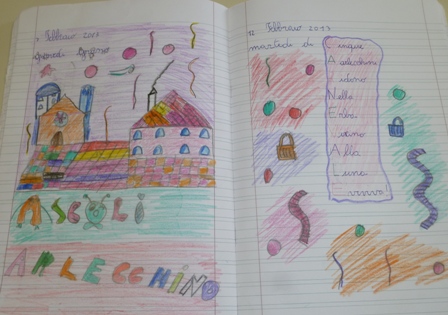 7 Febbraio 2013
Giovedì Grasso
ASCOLI
ARLECCHINO
12 Febbraio 2013
martedì di
Cinque
Arlecchini
Nella
Erba
Alla
Luna